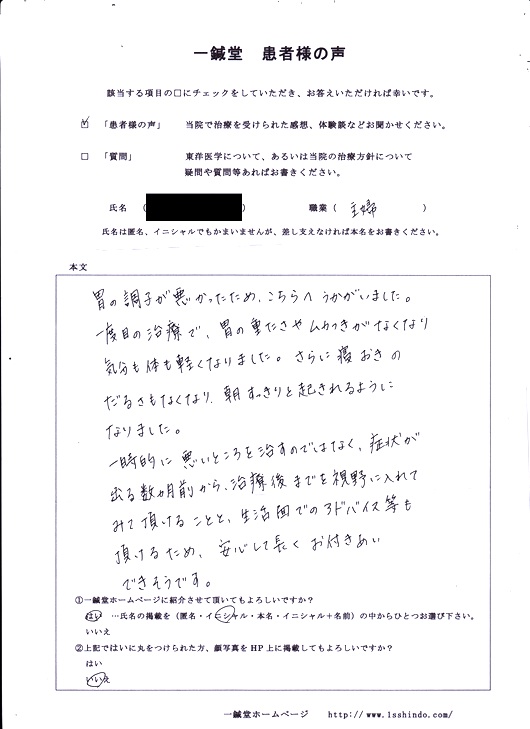 一鍼堂 患者様の声
該当する項目の□にチェックをしていただき、お答えいただければ幸いです。
☑ 「患者様の声」 当院で治療を受けられた感想、体験談などお聞かせください。
□ 「質問」 東洋医学について、あるいは当院の治療方針について
疑問や質問等あればお書きください。
氏名 ( ) 職業 ( 主婦 )
氏名は匿名、イニシャルでもかまいませんが、差し支えなければ本名をお書きください。
本文
胃の調子が悪かったため、こちらへうかがいました。
一度目の治療で、胃の重たさやムカつきがなくなり
気分も体も軽くなりました。さらに寝おきの
だるさもなくなり、朝すっきりと起きれるように
なりました。
一時的に悪いところを治すのではなく、症状が
出る数カ月前から、治療後までを視野に入れて
みて頂けることと、生活面でのアドバイス等も
頂けるため、安心して長くお付きあい
できそうです。
①一鍼堂ホームページに紹介させて頂いてもよろしいですか?
はい …氏名の掲載を(匿名・イニシャル・本名・イニシャル+名前)の中からひとつお選び下さい。
いいえ
②上記ではいに丸をつけられた方、顔写真をHP上に掲載してもよろしいですか?
はい
いいえ
一鍼堂ホームページ http://www.1sshindo.com/